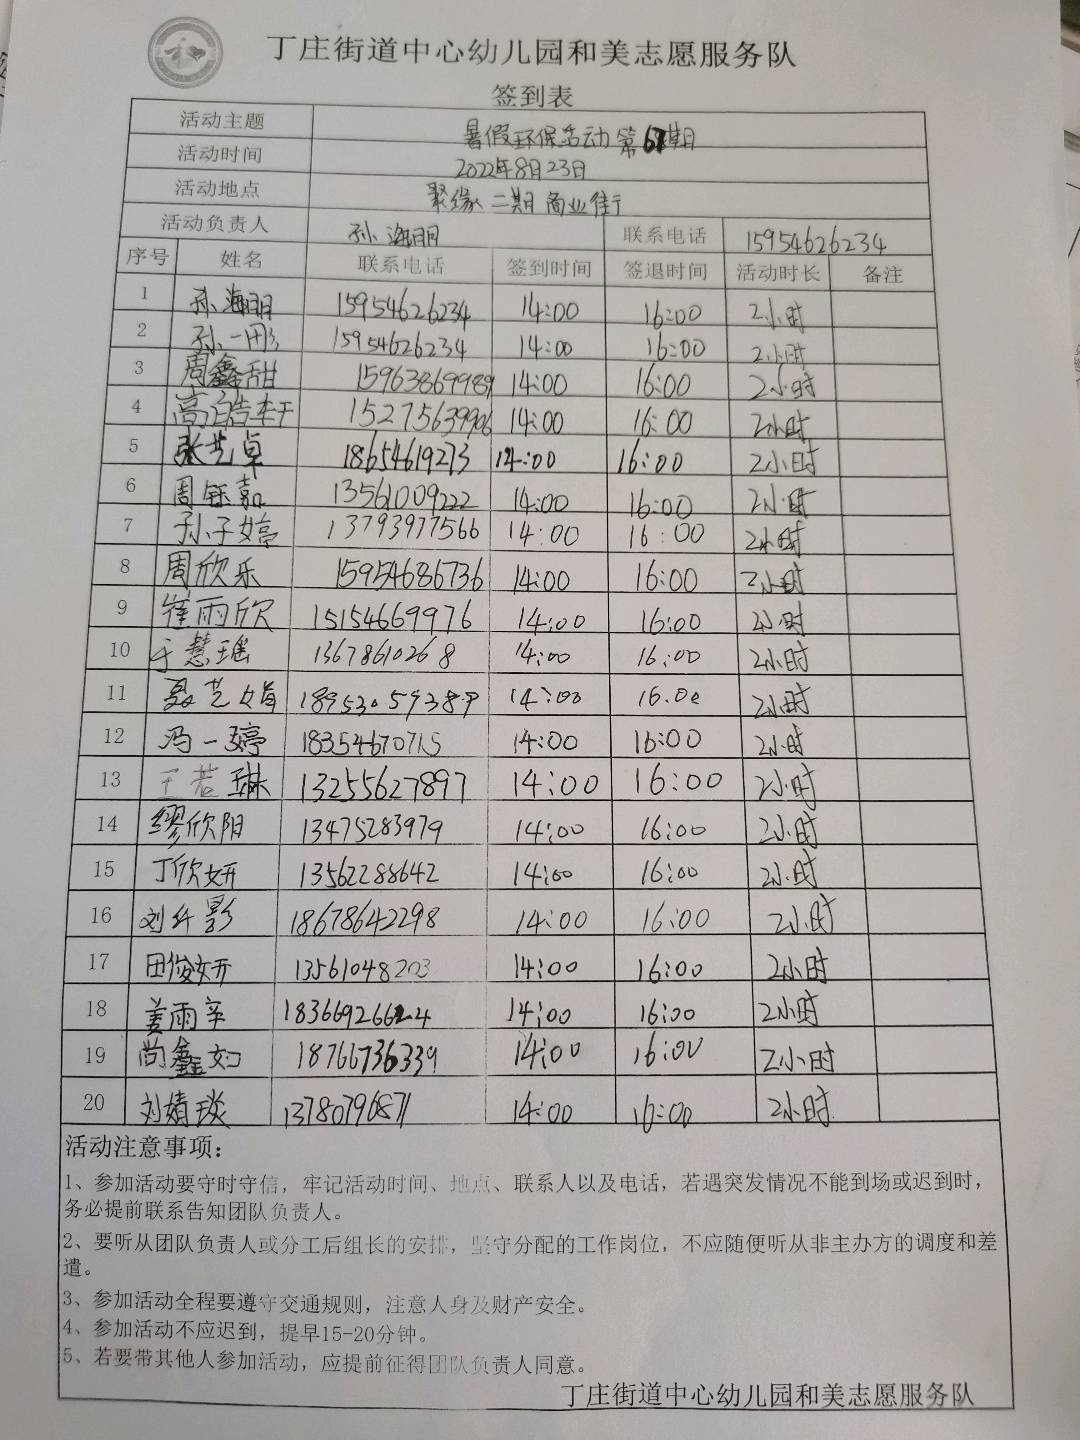 丁庄街道中心幼儿园和美志愿服务队
签到表
活动主题 暑假环保活动 第 期
活动时间 2022年8月23日
活动地点 聚缘二期商业街
活动负责人 孙海明 联系电话 15954626234
序号 姓名 联系电话 签到时间 签退时间 活动时长 备注
1 孙海明 15954626234 14:00 16:00 2小时
2 孙一彤 15954626234 14:00 16:00 2小时
3 周鑫甜 15963869989 14:00 16:00 2小时
4 高皓轩 15275639906 14:00 16:00 2小时
5 张艺卓 18654619273 14:00 16:00 2小时
6 周钰嘉 13561009222 14:00 16:00 2小时
7 孙子婷 13793977566 14:00 16:00 2小时
8 周欣乐 15954686736 14:00 16:00 2小时
9 崔雨欣 15154669976 14:00 16:00 2小时
10 于慧瑶 13678610268 14:00 16:00 2小时
11 聂艺娟 18953059389 14:00 16:00 2小时
12 冯一婷 18354670715 14:00 16:00 2小时
13 王若琳 13255627897 14:00 16:00 2小时
14 缪欣阳 13475283979 14:00 16:00 2小时
15 丁欣妍 13562288642 14:00 16:00 2小时
16 刘 影 18678642298 14:00 16:00 2小时
17 田俊妍 13561048203 14:00 16:00 2小时
18 姜雨辛 18366926624 14:00 16:00 2小时
19 尚鑫如 18766736339 14:00 16:00 2小时
20 刘婧琰 13780796871 14:00 16:00 2小时
活动注意事项：
1、参加活动要守时守信，牢记活动时间、地点、联系人以及电话，若遇突发情况不能到场或迟到时，
务必提前联系告知团队负责人。
2、要听从团队负责人或分工后组长的安排，坚守分配的工作岗位，不应随便听从非主办方的调度和差
遣。
3、参加活动全程要遵守交通规则，注意人身及财产安全。
4、参加活动不应迟到，提早15-20分钟。
5、若要带其他人参加活动，应提前征得团队负责人同意。
丁庄街道中心幼儿园和美志愿服务队